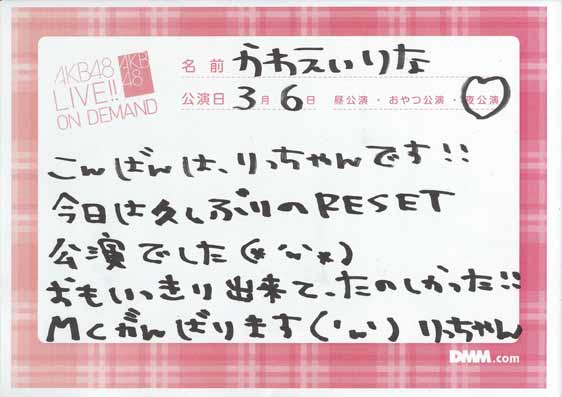 AKB48
LIVE!!
ON DEMAND
AKB
48
名前 かわえいりな
公演日 3月6日 昼公演・おやつ公演・夜公演
こんばんは、りっちゃんです!!
今日は久しぶりのRESET
公演でした(*'-'*)
おもいっきり出来て、たのしかった!!
MCがんばります('ω') りっちゃん
DMM.com